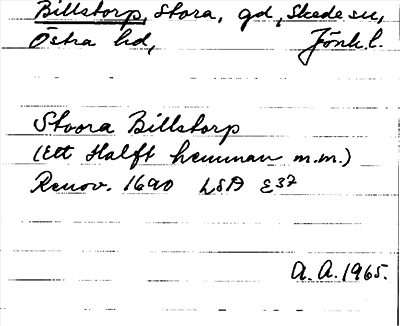 Billstorp, Stora, gd, Skede sn,
Östra hd, Jönk l.
Stoora Billstorp
(Ett Halft hemman m.m.)
Renov. 1690 LSA E37
A. A. 1965.